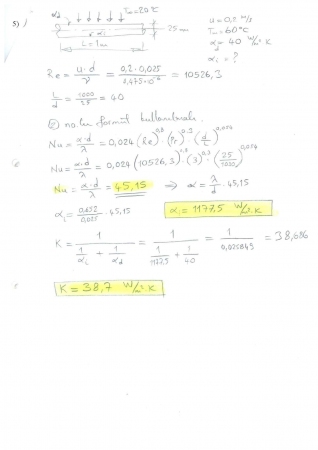 5) αd T∞=20°C u=0,2 m/s
25 mm T∞=60°C
αi αd = 40 W/m²·K
L=1m αi = ?
Re = u·d / ν = 0,2·0,025 / 0,475·10⁻⁶ = 10526,3
L/d = 1000/25 = 40
no.lu formül kullanılırsa.
Nu = α·d/λ = 0,024 (Re)^0,8 · (Pr)^0,3 (d/L)^0,054
Nu = α·d/λ = 0,024 (10526,3)^0,8 · (3)^0,3 · (25/1000)^0,054
Nu = α·d/λ = 45,15 ⇒ α = λ/d · 45,15
αi = 0,652/0,025 · 45,15 αi = 1177,5 W/m²·K
K = 1 / (1/αi + 1/αd) = 1 / (1/1177,5 + 1/40) = 1 / 0,025849 = 38,686
K = 38,7 W/m²·K